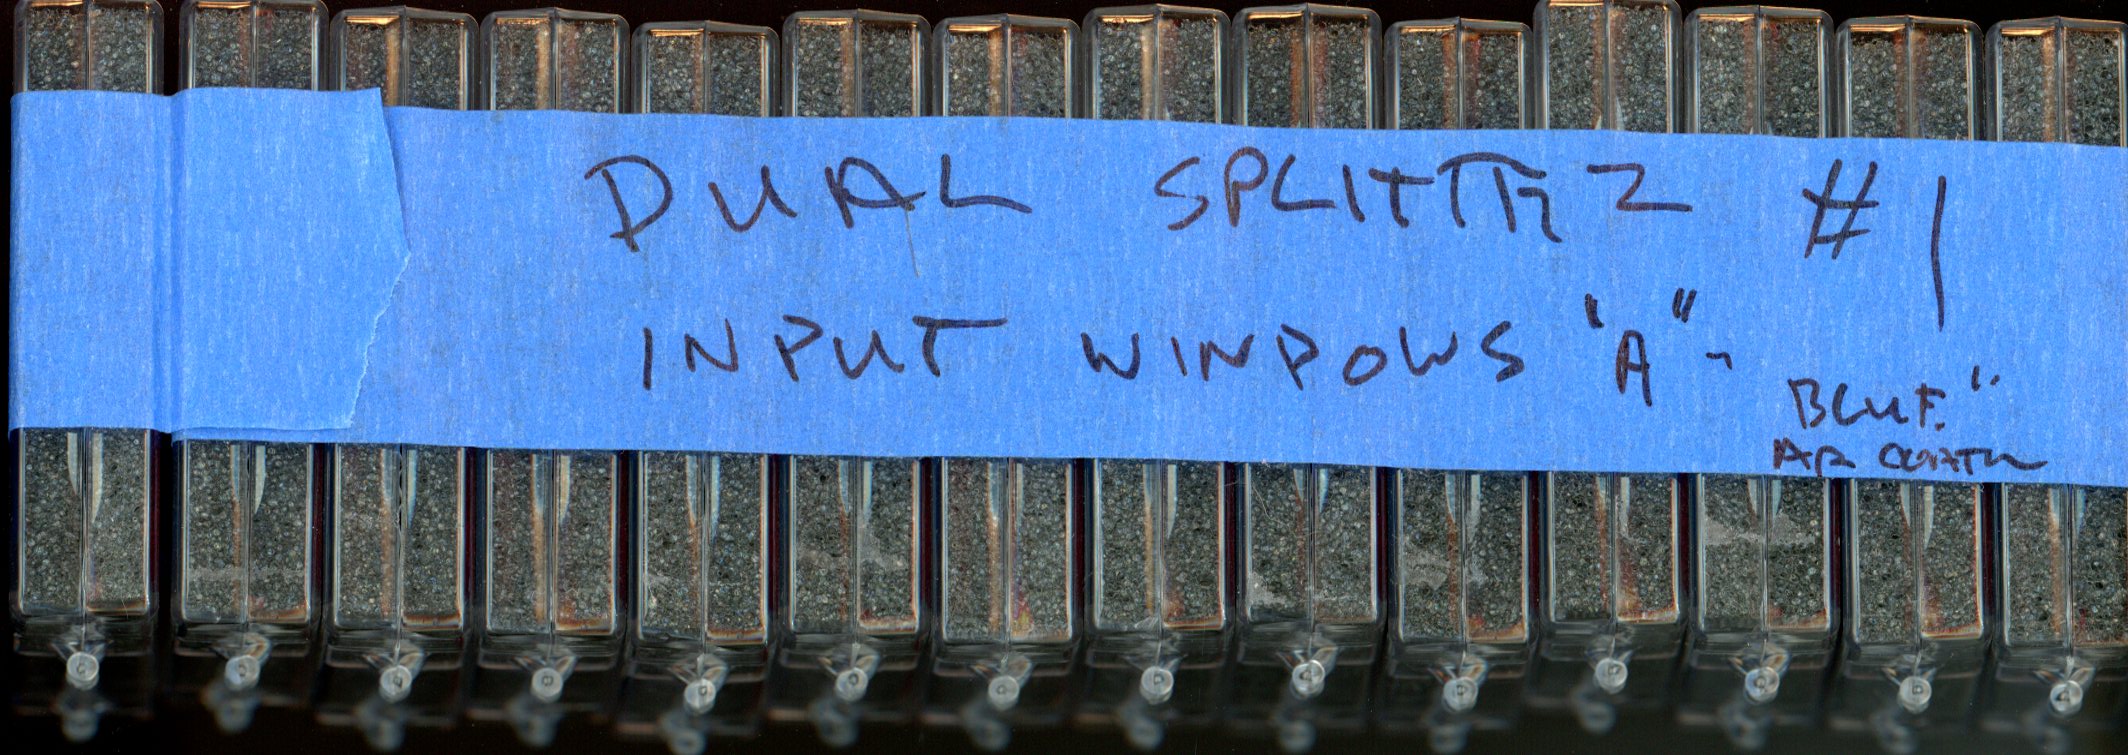 DUAL SPLITTER #1
INPUT WINDOWS "A" -
BLUE"
AR COATED